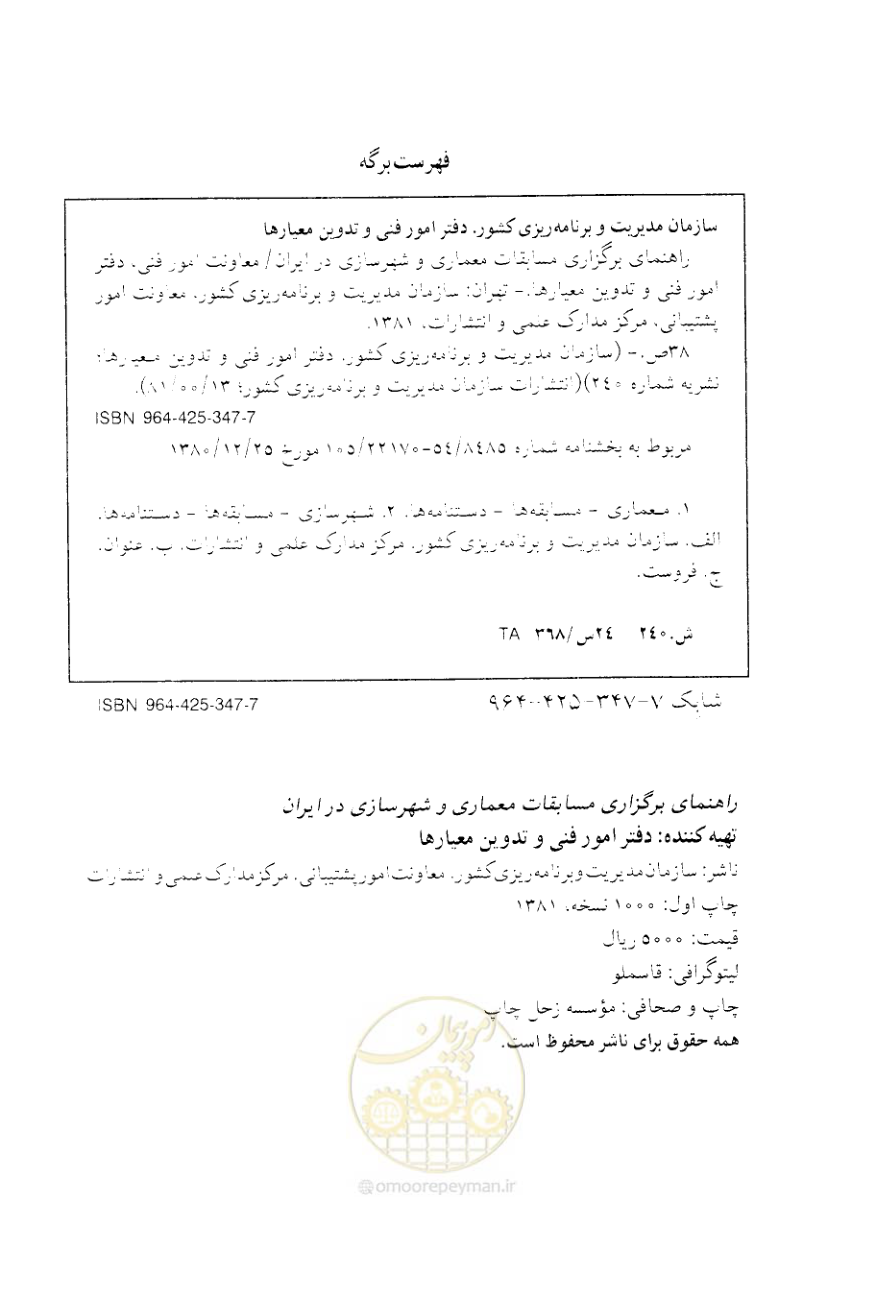 فهرست برگه
سازمان مدیریت و برنامه‌ریزی کشور. دفتر امور فنی و تدوین معیارها
راهنمای برگزاری مسابقات معماری و شهرسازی در ایران/ معاونت امور فنی، دفتر
امور فنی و تدوین معیارها.- تهران: سازمان مدیریت و برنامه‌ریزی کشور، معاونت امور
پشتیبانی، مرکز مدارک علمی و انتشارات، ۱۳۸۱.
۳۸ص.- (سازمان مدیریت و برنامه‌ریزی کشور. دفتر امور فنی و تدوین معیارها؛
نشریه شماره ۲۴۰)(انتشارات سازمان مدیریت و برنامه‌ریزی کشور؛ ۸۱/۰۰/۱۳).
ISBN 964-425-347-7
مربوط به بخشنامه شماره ۱۰۵/۲۲۱۷۰-۵۴/۸۴۸۵ مورخ ۱۳۸۰/۱۲/۲۵
۱. معماری - مسابقه‌ها - دستنامه‌ها. ۲. شهرسازی - مسابقه‌ها - دستنامه‌ها.
الف. سازمان مدیریت و برنامه‌ریزی کشور. مرکز مدارک علمی و انتشارات. ب. عنوان.
ج. فروست.
ش.۲۴۰ ۲۴س/۳۶۸ TA
شابک ۷-۳۴۷-۴۲۵-۹۶۴ ISBN 964-425-347-7
راهنمای برگزاری مسابقات معماری و شهرسازی در ایران
تهیه کننده: دفتر امور فنی و تدوین معیارها
ناشر: سازمان مدیریت و برنامه ریزی کشور، معاونت امور پشتیبانی، مرکز مدارک علمی و انتشارات
چاپ اول: ۱۰۰۰ نسخه، ۱۳۸۱
قیمت: ۵۰۰۰ ریال
لیتوگرافی: قاسملو
چاپ و صحافی: مؤسسه زحل چاپ
همه حقوق برای ناشر محفوظ است.
امور پیمان
@omoorepeyman.ir